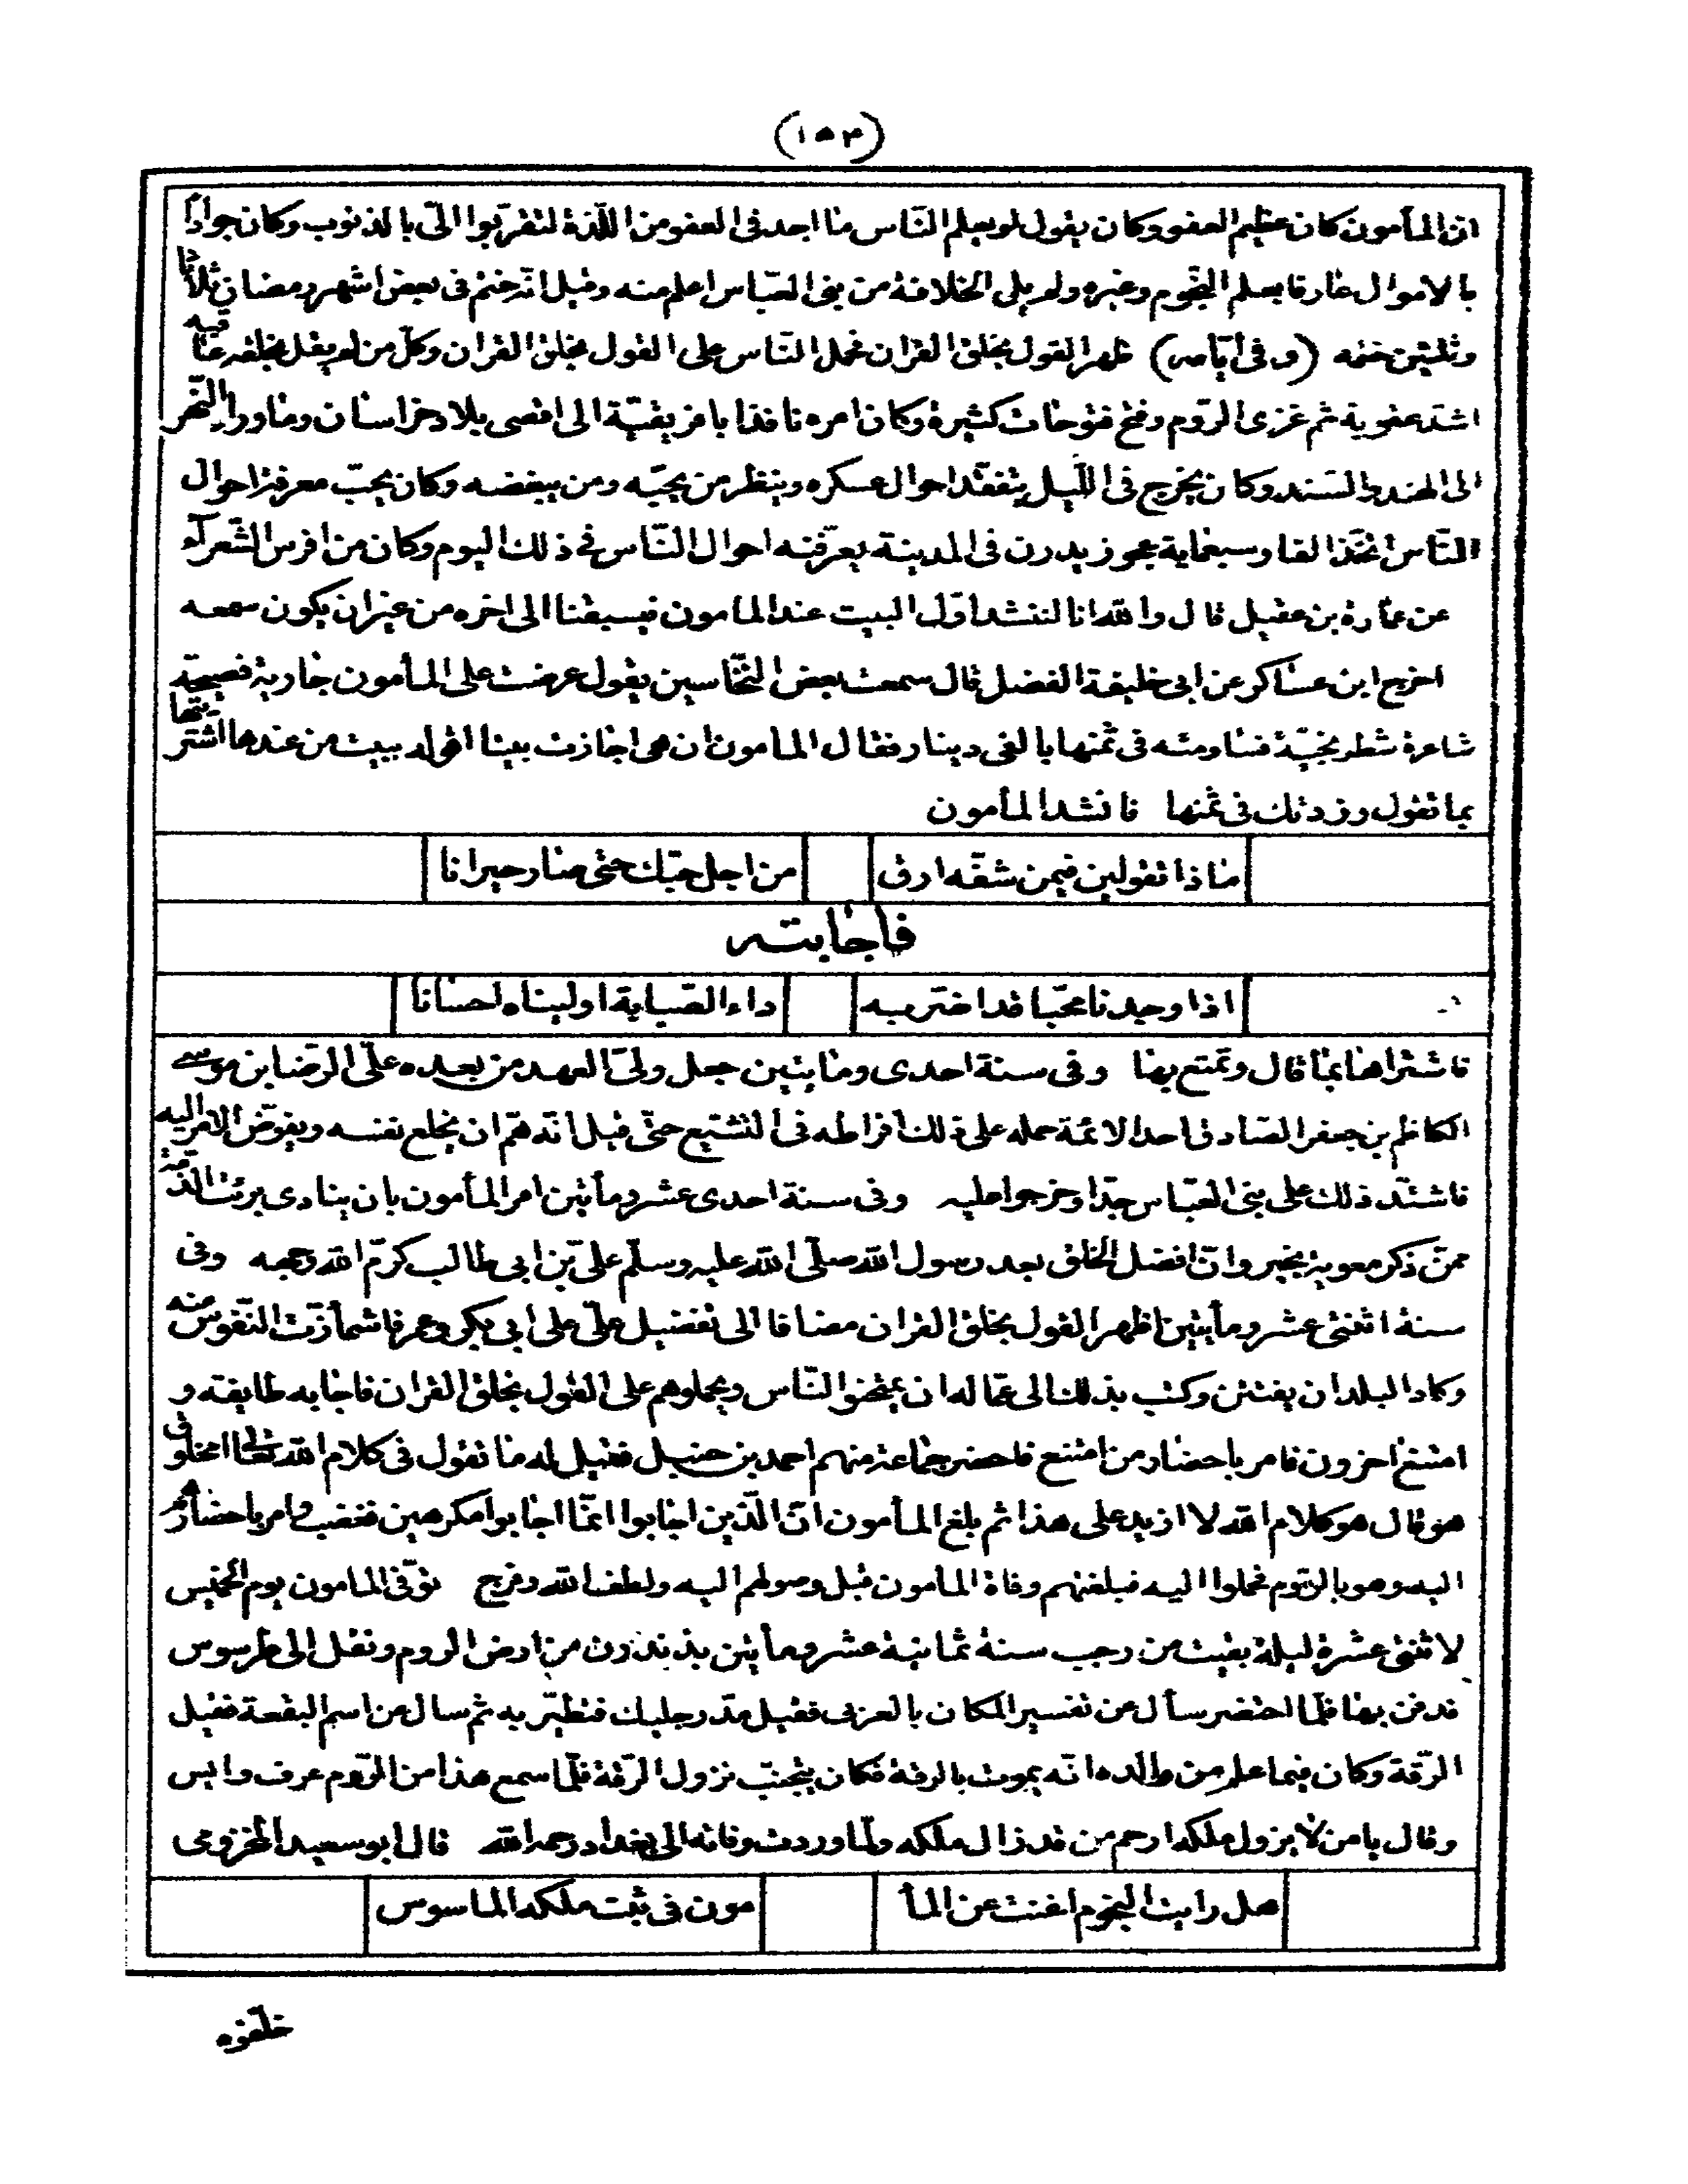 (١٥٣)
ان المأمون كان عظيم العفو وكان يقول لو يعلم الناس ما اجد فى العفو من اللّذة لتقربوا الىّ بالذنوب وكان جوادًا
بالاموال عارفا بعلم النجوم وغيره ولم يلى الخلافة من بنى العبّاس اعلم منه وقيل انّه ختم فى بعض اشهر رمضان ثلاثا
وثلثين ختمه (و فى ايّامه) ظهر القول بخلق القران فحمل النّاس على القول بخلق القران وكلّ من لم يقل بخلقه عاقبه
اشد عقوبة ثم غزى الرّوم وفتح فتوحات كثيرة وكان امره نافذا بافريقيّة الى اقصى بلاد خراسان وما وراء النّهر
الى الهند والسّند وكان يخرج فى اللّيل يتفقّد احوال عسكره وينظر من يحبّه ومن يبغضه وكان يحبّ معرفة احوال
النّاس اتّخذ الفا وسبعماية عجوز يدرن فى المدينة يعرّفنه احوال النّاس فى ذلك اليوم وكان من افرس الشّعرآء
عن عمارة بن عقيل قال والله انا لننشد اوّل البيت عند المامون فيسبقنا الى اخره من غيران يكون سمعه
اخرج ابن عساكر عن ابى خليفة الفضل قال سمعت بعض النّخّاسين يقول عرضت على المأمون جارية فصيحة
شاعرة شطرنجيّة فساومته فى ثمنها بالفى دينار فقال المامون ان هى اجازت بيتا اقوله ببيت من عندها اشتريتها
بما تقول وزدتك فى ثمنها فانشد المأمون
ماذا تقولين فيمن شفّه ارق من اجل حبّك حتى صار حيرانا
فاجابته
اذا وجدنا محبّا قد اضرّ به داء الصّبابة اوليناه احسانا
فاشتراها بما قال وتمتع بها وفى سنة احدى ومايتين جعل ولىّ العهد من بعده علىّ الرّضا بن موسى
الكاظم بن جعفر الصّادق احد الائمّة حمله على ذلك افراطه فى التشيّع حتّى قيل انّه همّ ان يخلع نفسه ويفوّض الامر اليه
فاشتدّ ذلك على بنى العبّاس جدّا وخرجوا عليه وفى سنة احدى عشر ومأيتين امر المأمون بان ينادى برئت الذّمة
ممّن ذكر معوية بخير وانّ افضل الخلق بعد رسول الله صلّى الله عليه وسلّم علىّ بن ابى طالب كرّم الله وجهه وفى
سنة اثنتى عشر ومأيتين اظهر القول بخلق القران مضافا الى تفضيل علىّ على ابى بكر وعمر فاشمأزّت النّفوس منه
وكاد البلد ان يفتتن وكتب بذلك الى عمّاله ان يمتحنوا النّاس ويحملوهم على القول بخلق القران فاجابه طايفة و
امتنع اخرون فامر باحضار من امتنع فاحضر جماعة منهم احمد بن حنبل فقيل له ما تقول فى كلام الله تعالى امخلوق
هو قال هو كلام الله لا ازيد على هذا ثم بلغ المأمون انّ الّذين اجابوا انّما اجابوا مكرهين فغضب وامر باحضارهم
اليه وهو بالرّوم فحملوا اليه فبلغتهم وفاة المأمون قبل وصولهم اليه ولطف الله وفرج توّفى المامون يوم الخميس
لاثنتى عشرة ليلة بقيت من رجب سنة ثمانية عشر ومأيتين بذندرن من ارض الروم ونقل الى طرسوس
فدفن بها فلمّا احتضر سأل عن تفسير المكان بالعربى فقيل مدّ رجليك فتطيّر به ثم سال عن اسم البقعة فقيل
الرقّة وكان فيما علم من طالعه انّه يموت بالرقة فكان يتجنّب نزول الرّقة فلمّا سمع هذا من الرّوم عرف وايس
وقال يا من لا يزول ملكه ارحم من قد زال ملكه ولمّا وردت وفاته الى بغداد رحمه الله قال ابو سعيد المخزومى
هل رايت النجوم اغنت عن المأ مون فى ثبت ملكه الماسوس
خلّفوه